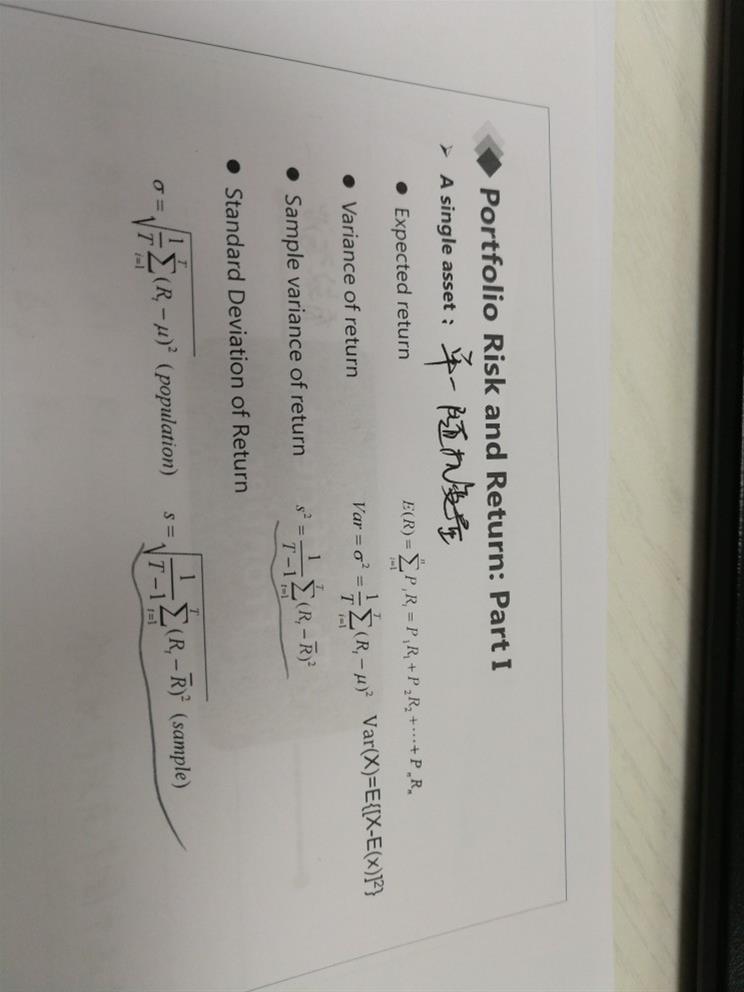 Portfolio Risk and Return: Part I
A single asset: 单一随机变量
Expected return E(R) = \sum_{i=1}^{n} P_i R_i = P_1 R_1 + P_2 R_2 + \cdots + P_n R_n
Variance of return Var = σ² = \frac{1}{T} \sum_{t=1}^{T} (R_t − μ)² Var(X)=E{[X-E(x)]²}
Sample variance of return s² = \frac{1}{T−1} \sum_{t=1}^{T} (R_t − \overline{R})²
Standard Deviation of Return
σ = \sqrt{\frac{1}{T} \sum_{t=1}^{T} (R_t − μ)²} (population) s = \sqrt{\frac{1}{T−1} \sum_{t=1}^{T} (R_t − \overline{R})²} (sample)